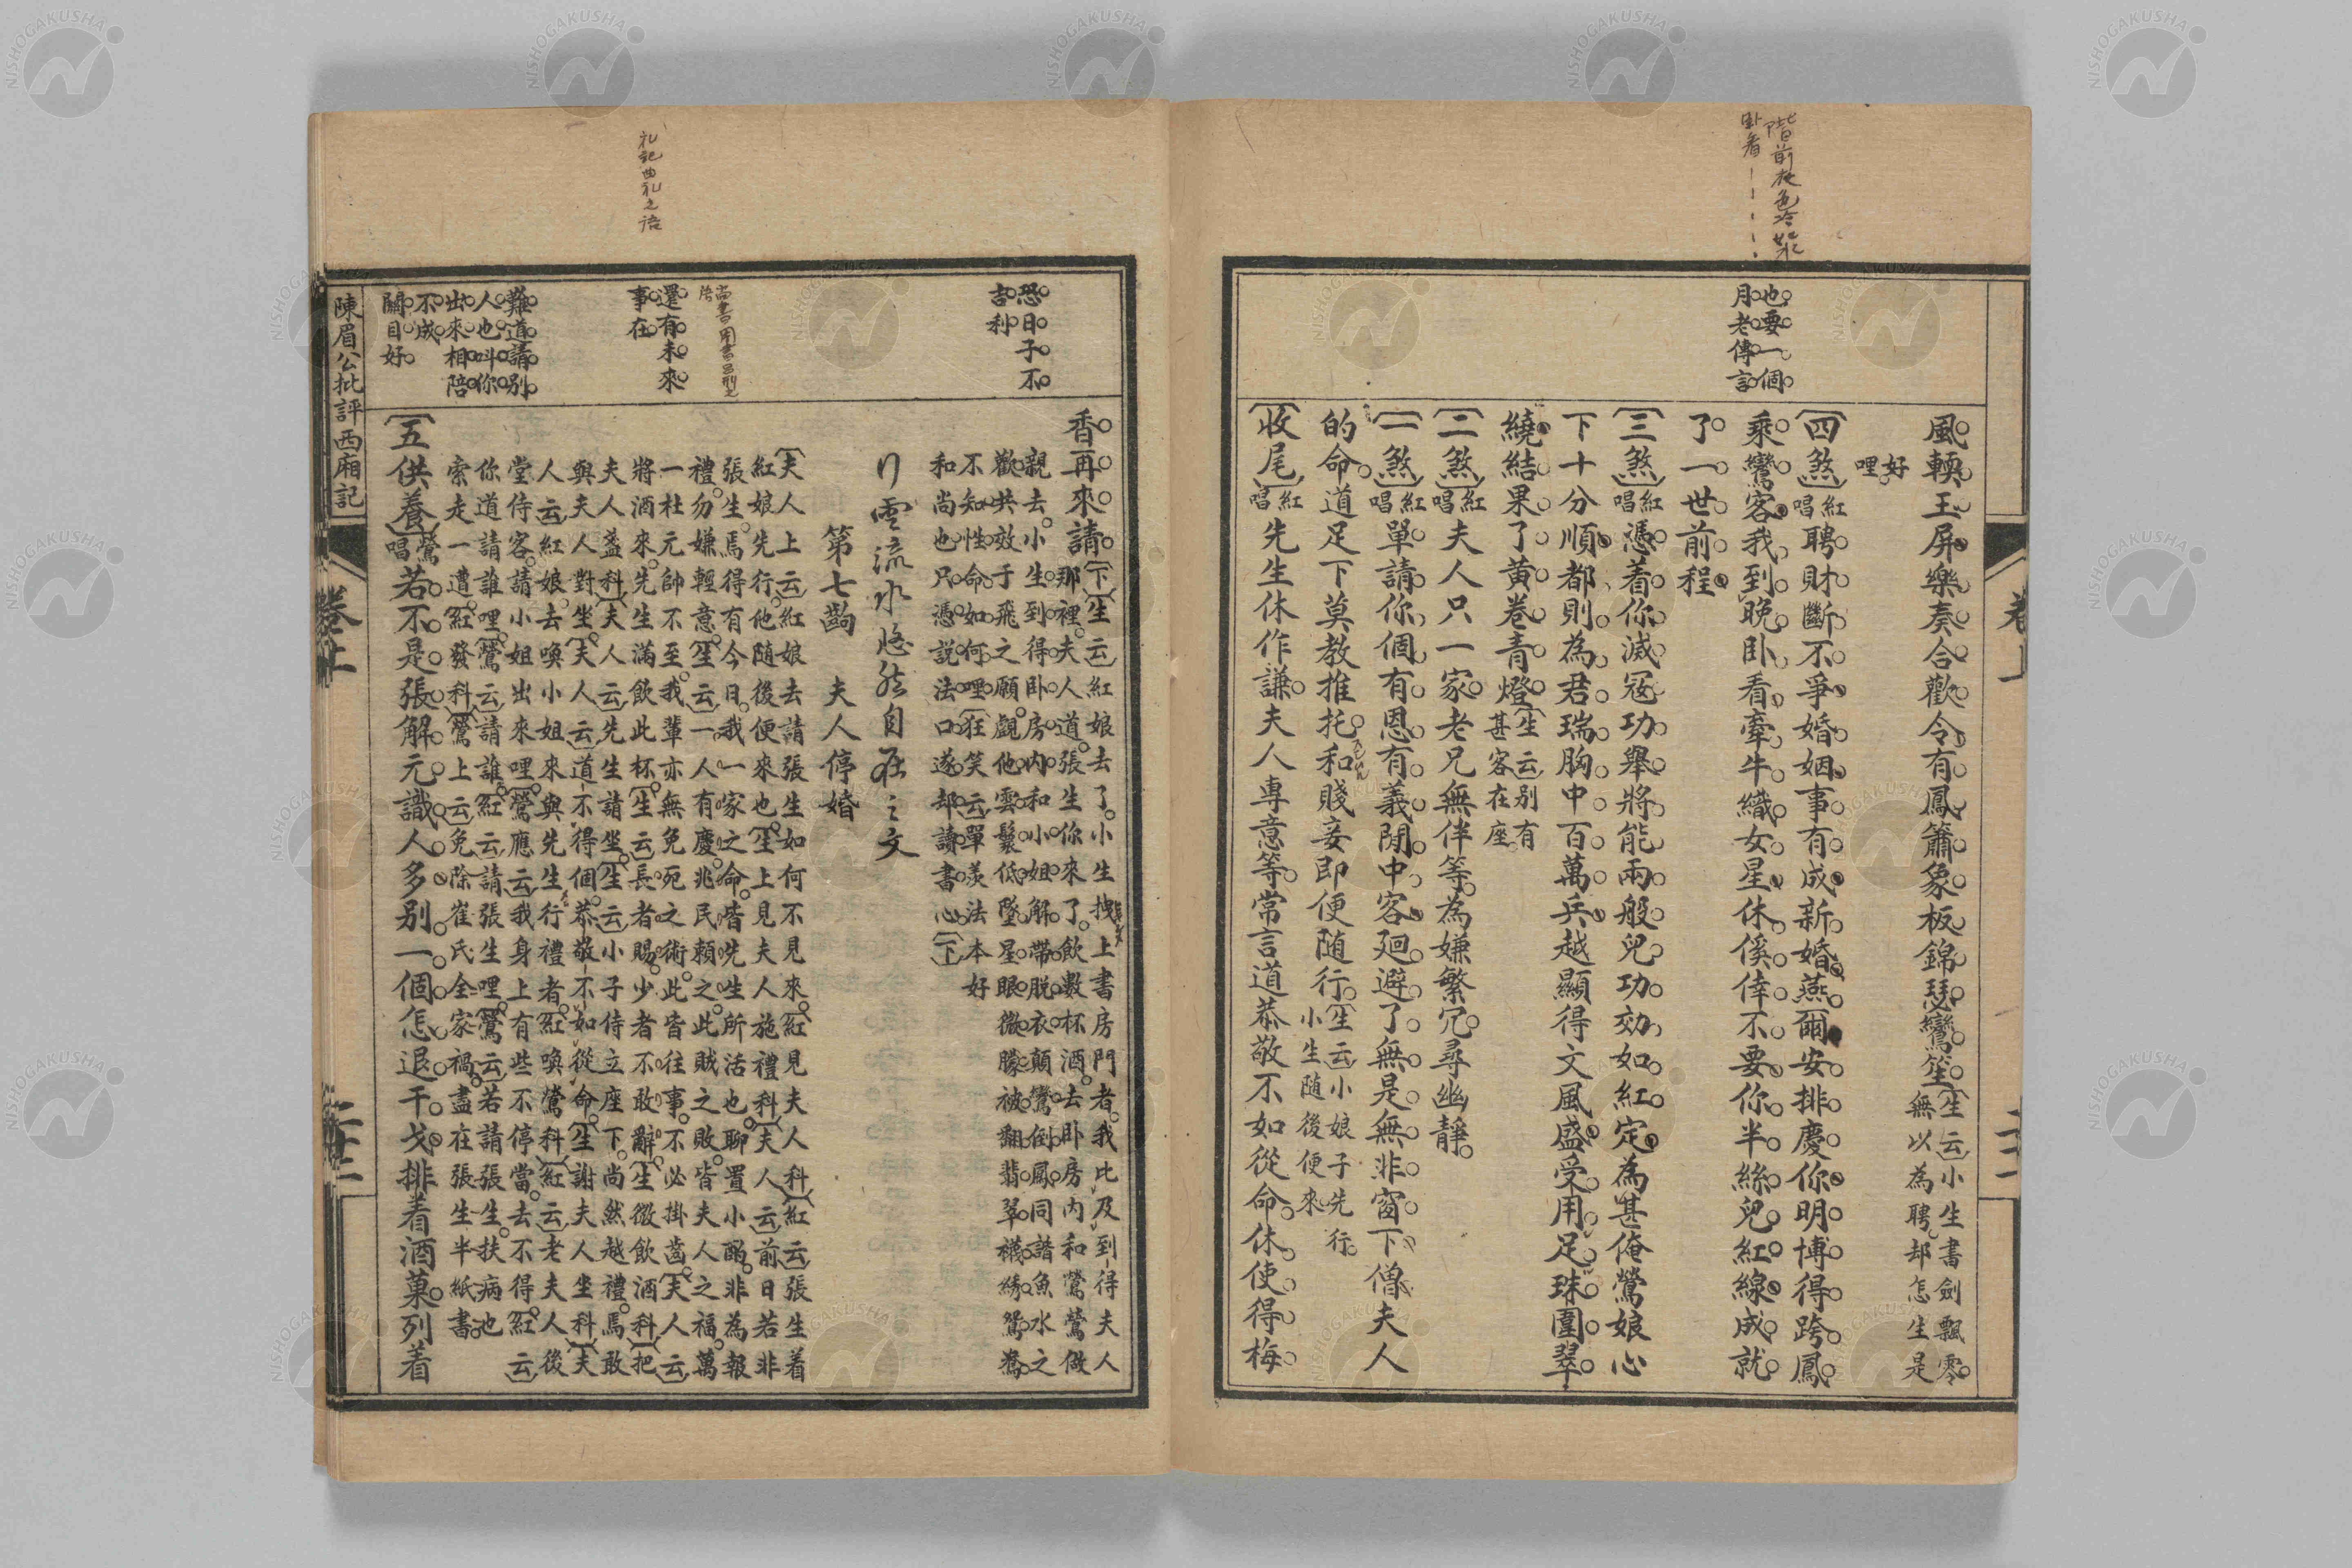 也要一個
月老傳言
風輭玉屏樂奏合歡令有鳳簫象板錦瑟鸞笙〔生云〕小生書劍飄零
無以為聘却怎生是
好
哩
〔四煞〕紅唱聘財斷不爭婚姻事有成新婚燕爾安排慶你明博得跨鳳
乘鸞客我到晚卧看牽牛織女星休傒倖不要你半絲兒紅線成就
了一世前程
〔三煞〕紅唱憑着你滅寇功舉將能兩般兒功効如紅定為甚俺鶯娘心
下十分順都則為君瑞胸中百萬兵越顯得文風盛受用足珠圍翠
繞結果了黄卷青燈〔生云〕别有
甚客在座
〔二煞〕紅唱夫人只一家老兄無伴等為嫌繁冗尋幽靜
〔一煞〕紅唱單請你個有恩有義閒中客廻避了無是無非窗下僧夫人
的命道足下莫教推托和賤妾即便随行〔生云〕小娘子先行
小生随後便來
〔收尾〕紅唱先生休作謙夫人專意等常言道恭敬不如從命休使得梅
恐日子不
吉利
還有未來
事在
難道請别
人也叫你
出來相陪
不成
關目好
香再來請〔下〕〔生云〕紅娘去了小生拽上書房門者我比及到得夫人
那裡夫人道張生你來了飲數杯酒去卧房内和鶯鶯做
親去小生到得卧房内和小姐解帶脱衣顛鸞倒鳳同諧魚水之
歡共效于飛之願覷他雲鬟低墜星眼微朦被翻翡翠襪綉鴛鴦
不知性命如何哩〔狂笑云〕單羡法本好
和尚也只憑説法口遂却讀書心〔下〕
行雲流水悠然自在之文
第七齣　夫人停婚
〔夫人上云〕紅娘去請張生如何不見來〔紅見夫人科〕〔紅云〕張生着
紅娘先行他随後便來也〔生上見夫人施禮科〕〔夫人云〕前日若非
張生焉得有今日我一家之命皆先生所活也聊置小酌非為報
禮勿嫌輕意〔生云〕一人有慶兆民賴之此賊之敗皆夫人之福萬
一杜元帥不至我輩亦無免死之術此皆往事不必掛齒〔夫人云〕
將酒來先生滿飲此杯〔生云〕長者賜少者不敢辭〔生微飲酒科〕〔把
夫人盞科〕〔夫人云〕先生請坐〔生云〕小子侍立座下尚然越禮焉敢
與夫人對坐〔夫人云〕道不得個恭敬不如從命〔生謝夫人坐科〕〔夫
人云〕紅娘去喚小姐來與先生行禮者〔紅喚鶯科〕〔紅云〕老夫人後
堂侍客請小姐出來哩〔鶯應云〕我身上有些不停當去不得〔紅云〕
你道請誰哩〔鶯云〕請誰〔紅云〕請張生哩〔鶯云〕若請張生扶病也
索走一遭〔紅發科〕〔鶯上云〕免除崔氏全家禍盡在張生半紙書
〔五供養〕鶯唱若不是張解元識人多别一個怎退干戈排着酒菓列着
陳眉公批評西廂記
卷上
礼記曲礼之語